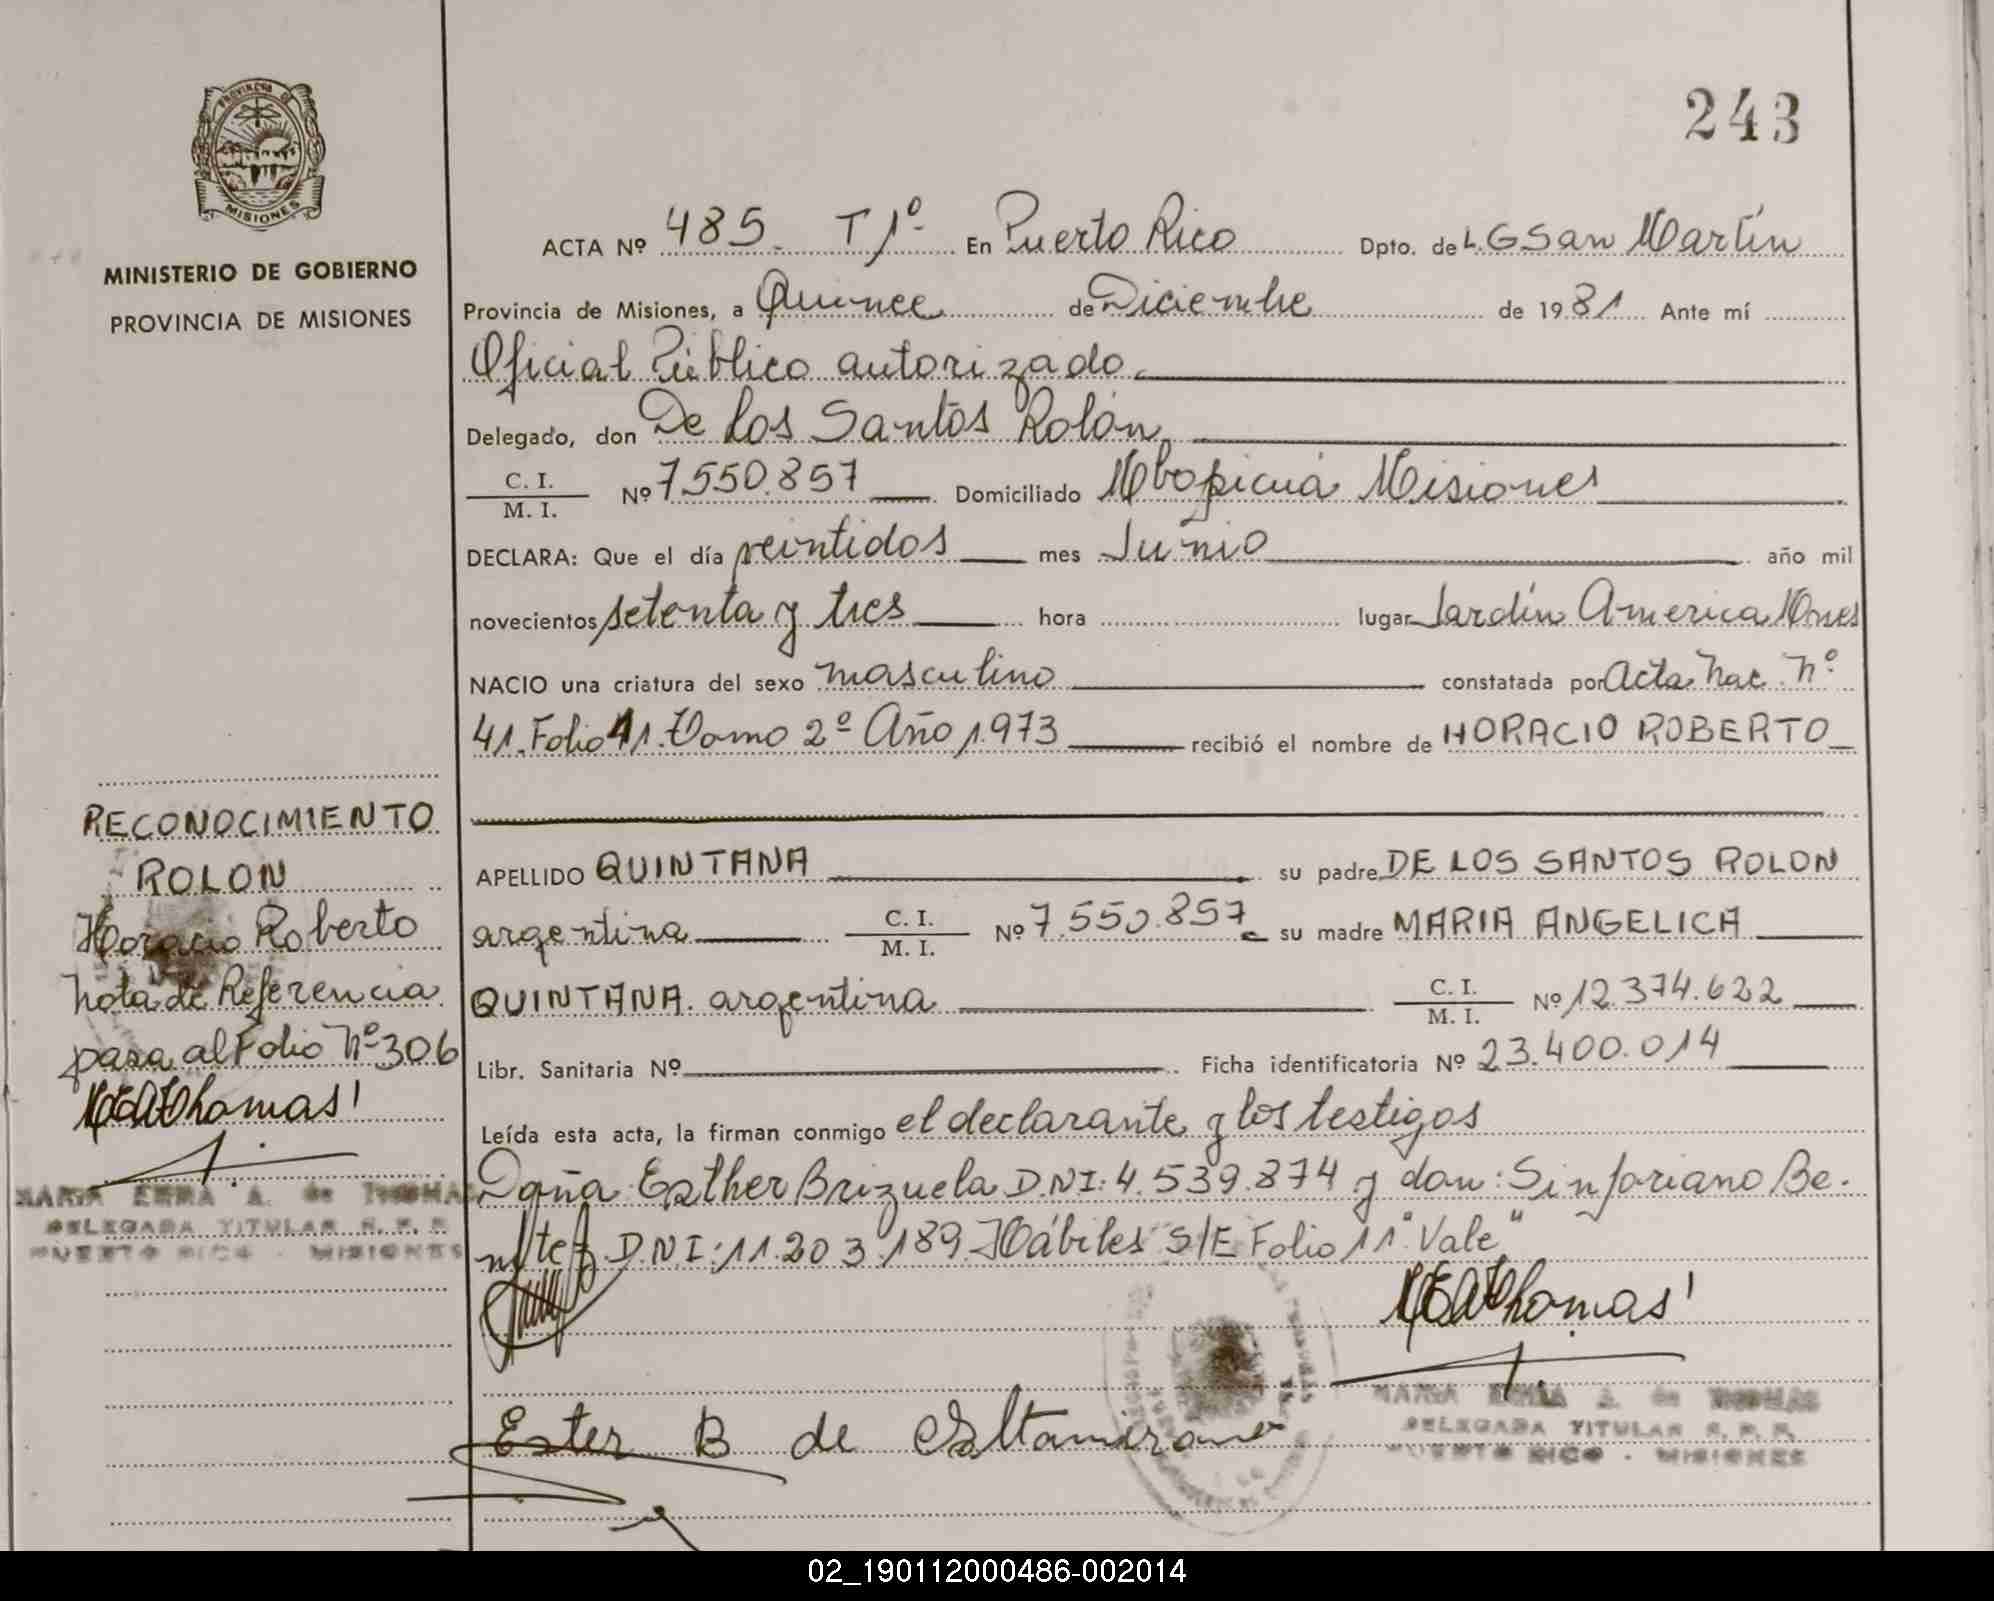 243
PROVINCIA DE
MISIONES
MINISTERIO DE GOBIERNO
PROVINCIA DE MISIONES
ACTA Nº 485. T 1º. En Puerto Rico Dpto. de L. G San Martín
Provincia de Misiones, a Quince de Diciembre de 1981 Ante mí
Oficial Público autorizado.
Delegado, don De los Santos Rolón,
C. I.
M. I.
Nº 7550.857 Domiciliado Mbopicuá Misiones
DECLARA: Que el día veintidos mes Junio año mil
novecientos setenta y tres hora lugar Jardín America Mnes
NACIO una criatura del sexo masculino constatada por Acta Nac. Nº
41. Folio 11. Tomo 2º Año 1973 recibió el nombre de HORACIO ROBERTO
APELLIDO QUINTANA su padre DE LOS SANTOS ROLON
argentina C. I.
M. I.
Nº 7.550.857 su madre MARIA ANGELICA
QUINTANA. argentina C. I.
M. I.
Nº 12.374.622
Libr. Sanitaria Nº Ficha identificatoria Nº 23.400.014
Leída esta acta, la firman conmigo el declarante y los testigos
Doña Esther Brizuela D.N.I: 4.539.874 y don: Sinforiano Be.
nítez D.N.I: 11.203.189. Hábiles S/E Folio 11 "Vale"
RECONOCIMIENTO
ROLON
Horacio Roberto
Nota de Referencia
pasa al Folio Nº 306
MEAThomas
MARIA ERMA A. de THOMAS
DELEGADA TITULAR R. P. P.
PUERTO RICO - MISIONES
MEAThomas
Ester B de Altamirano
MARIA ERMA A. de THOMAS
DELEGADA TITULAR R. P. P.
PUERTO RICO - MISIONES
02_190112000486-002014